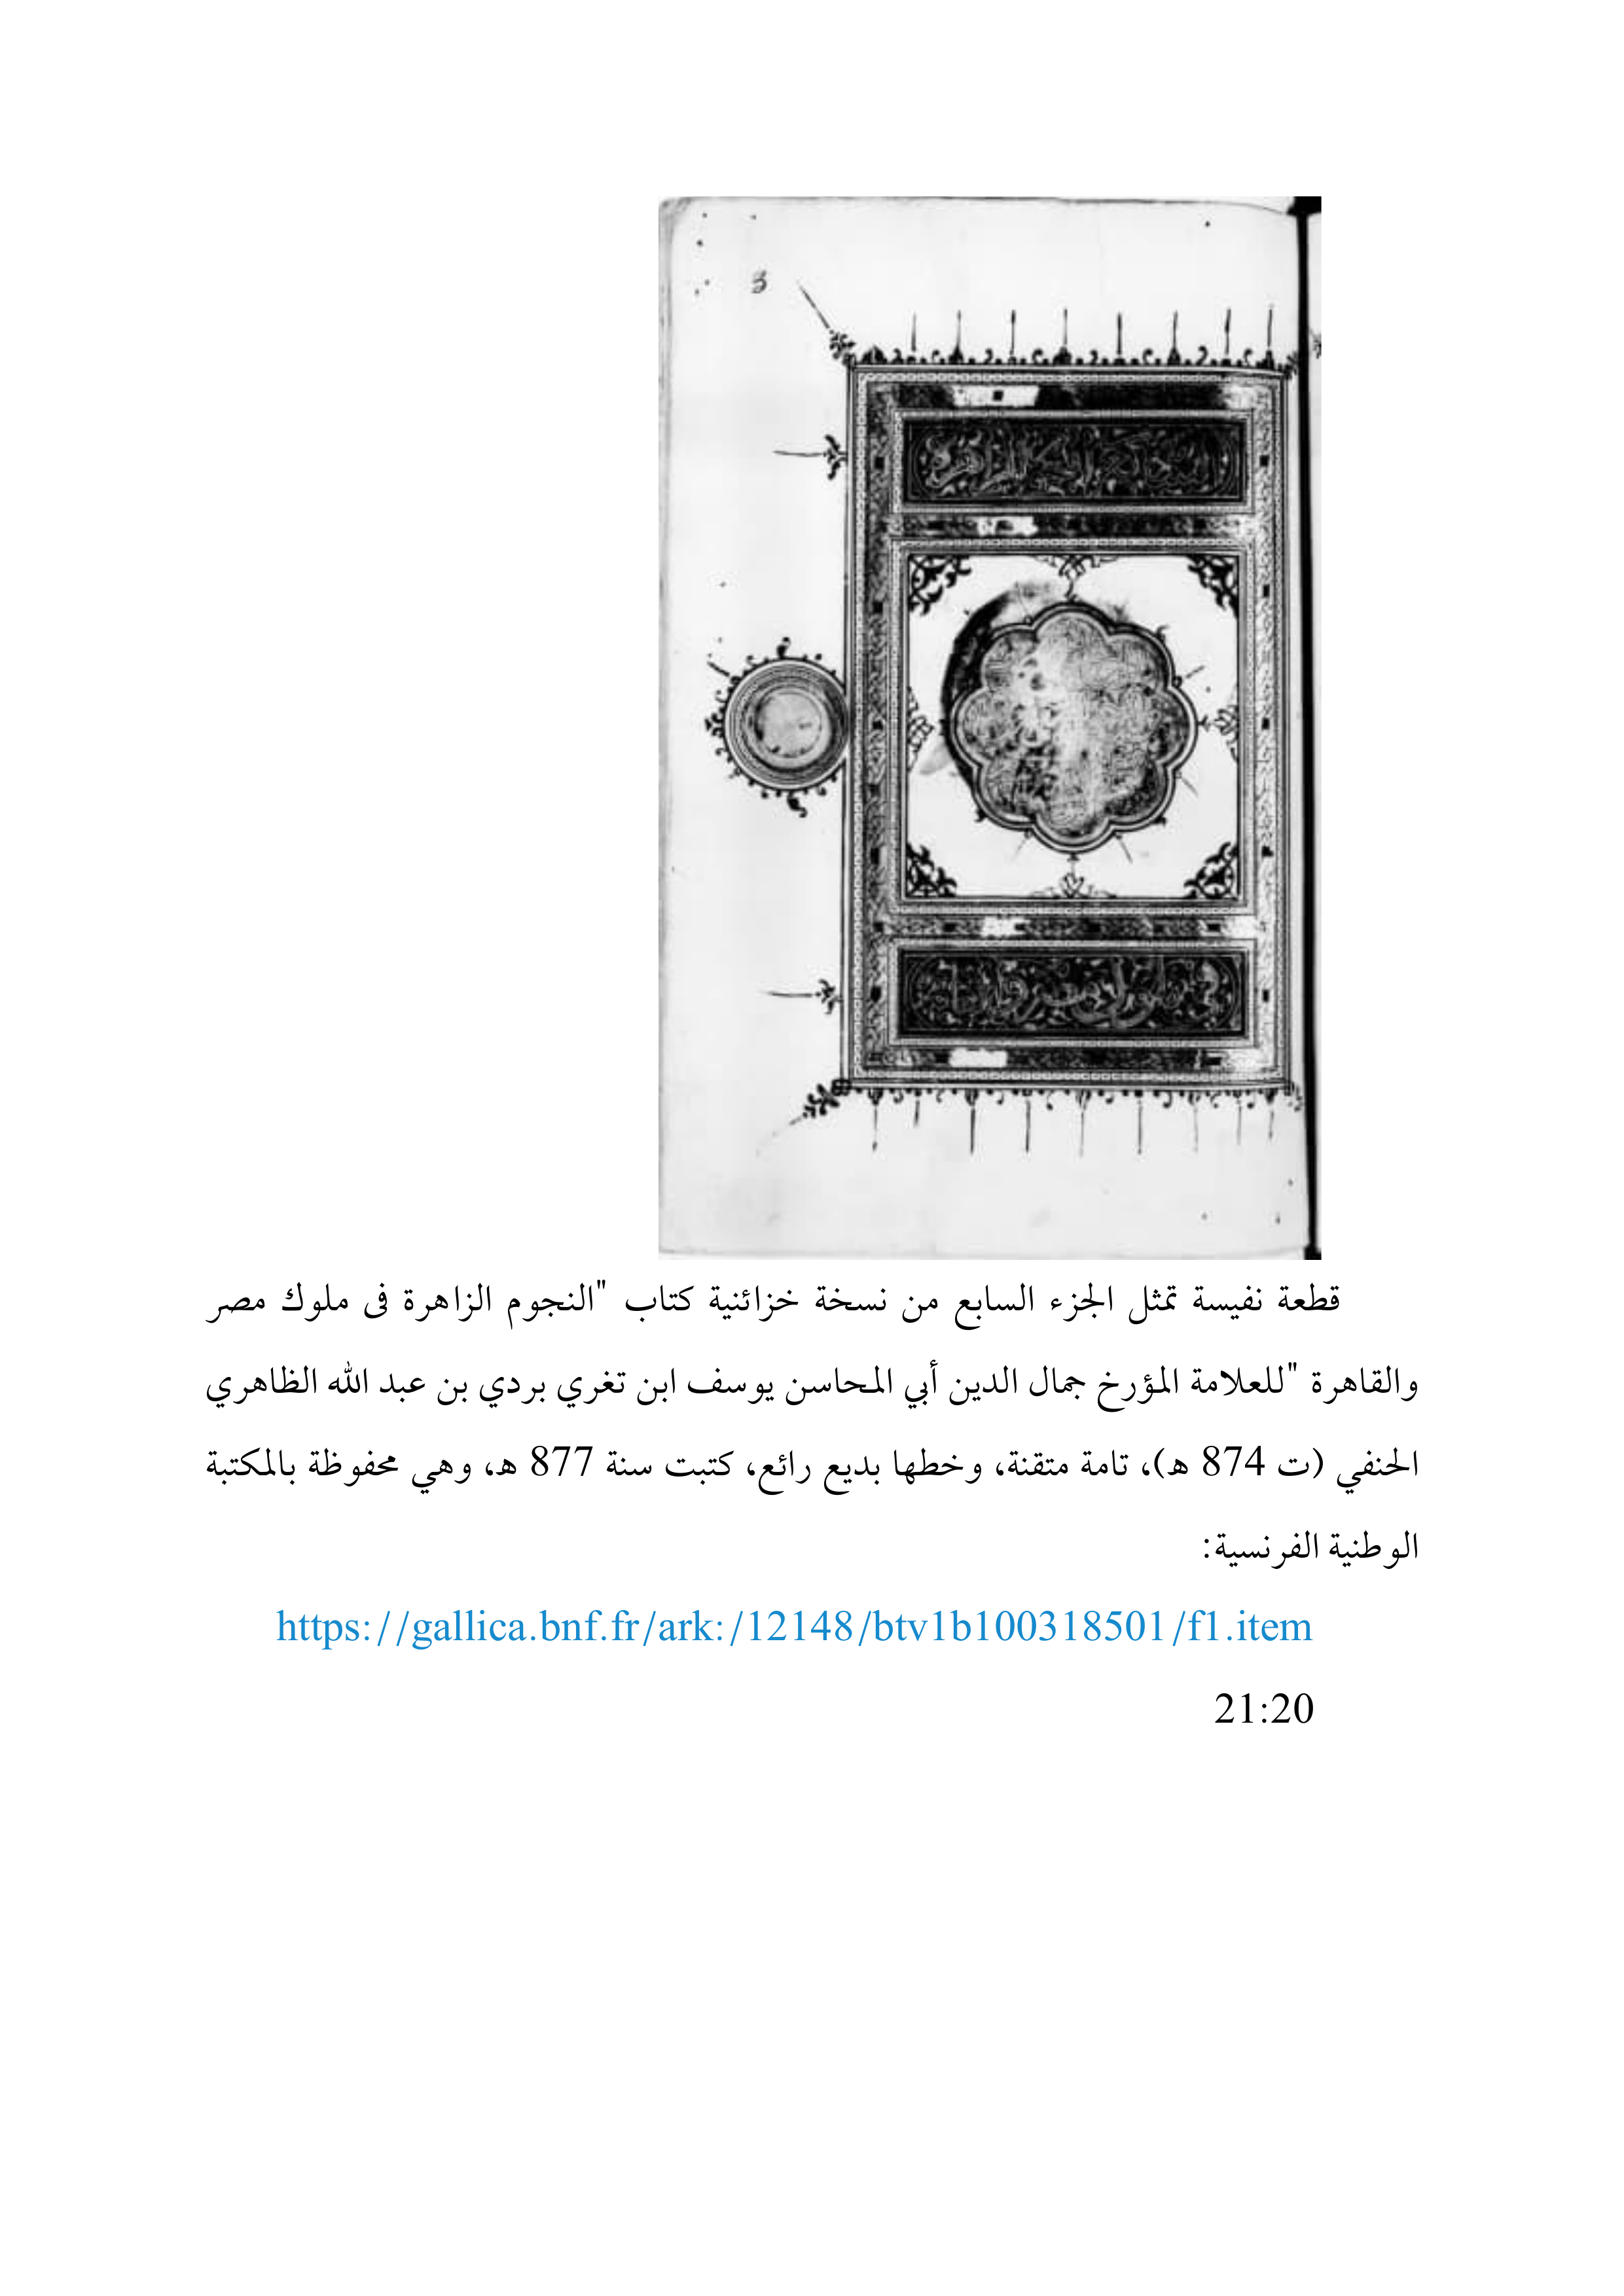 3
قطعة نفيسة تمثل الجزء السابع من نسخة خزائنية كتاب "النجوم الزاهرة فى ملوك مصر
والقاهرة "للعلامة المؤرخ جمال الدين أبي المحاسن يوسف ابن تغري بردي بن عبد الله الظاهري
الحنفي (ت 874 ه)، تامة متقنة، وخطها بديع رائع، كتبت سنة 877 ه، وهي محفوظة بالمكتبة
الوطنية الفرنسية:
https://gallica.bnf.fr/ark:/12148/btv1b100318501/f1.item
21:20